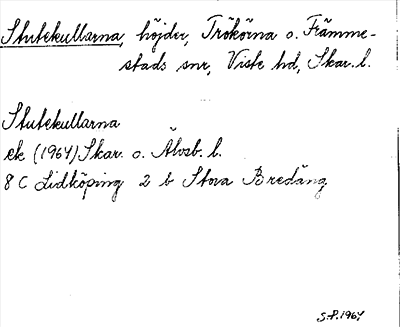 Stutekullarna, höjder, Trökörna o. Främme-
stads snr, Viste hd, Skar. l.
Stutekullarna
ek (1967) Skar. o. Älvsb. l.
8 C Lidköping 2 b Stora Bredäng
S.P. 1967